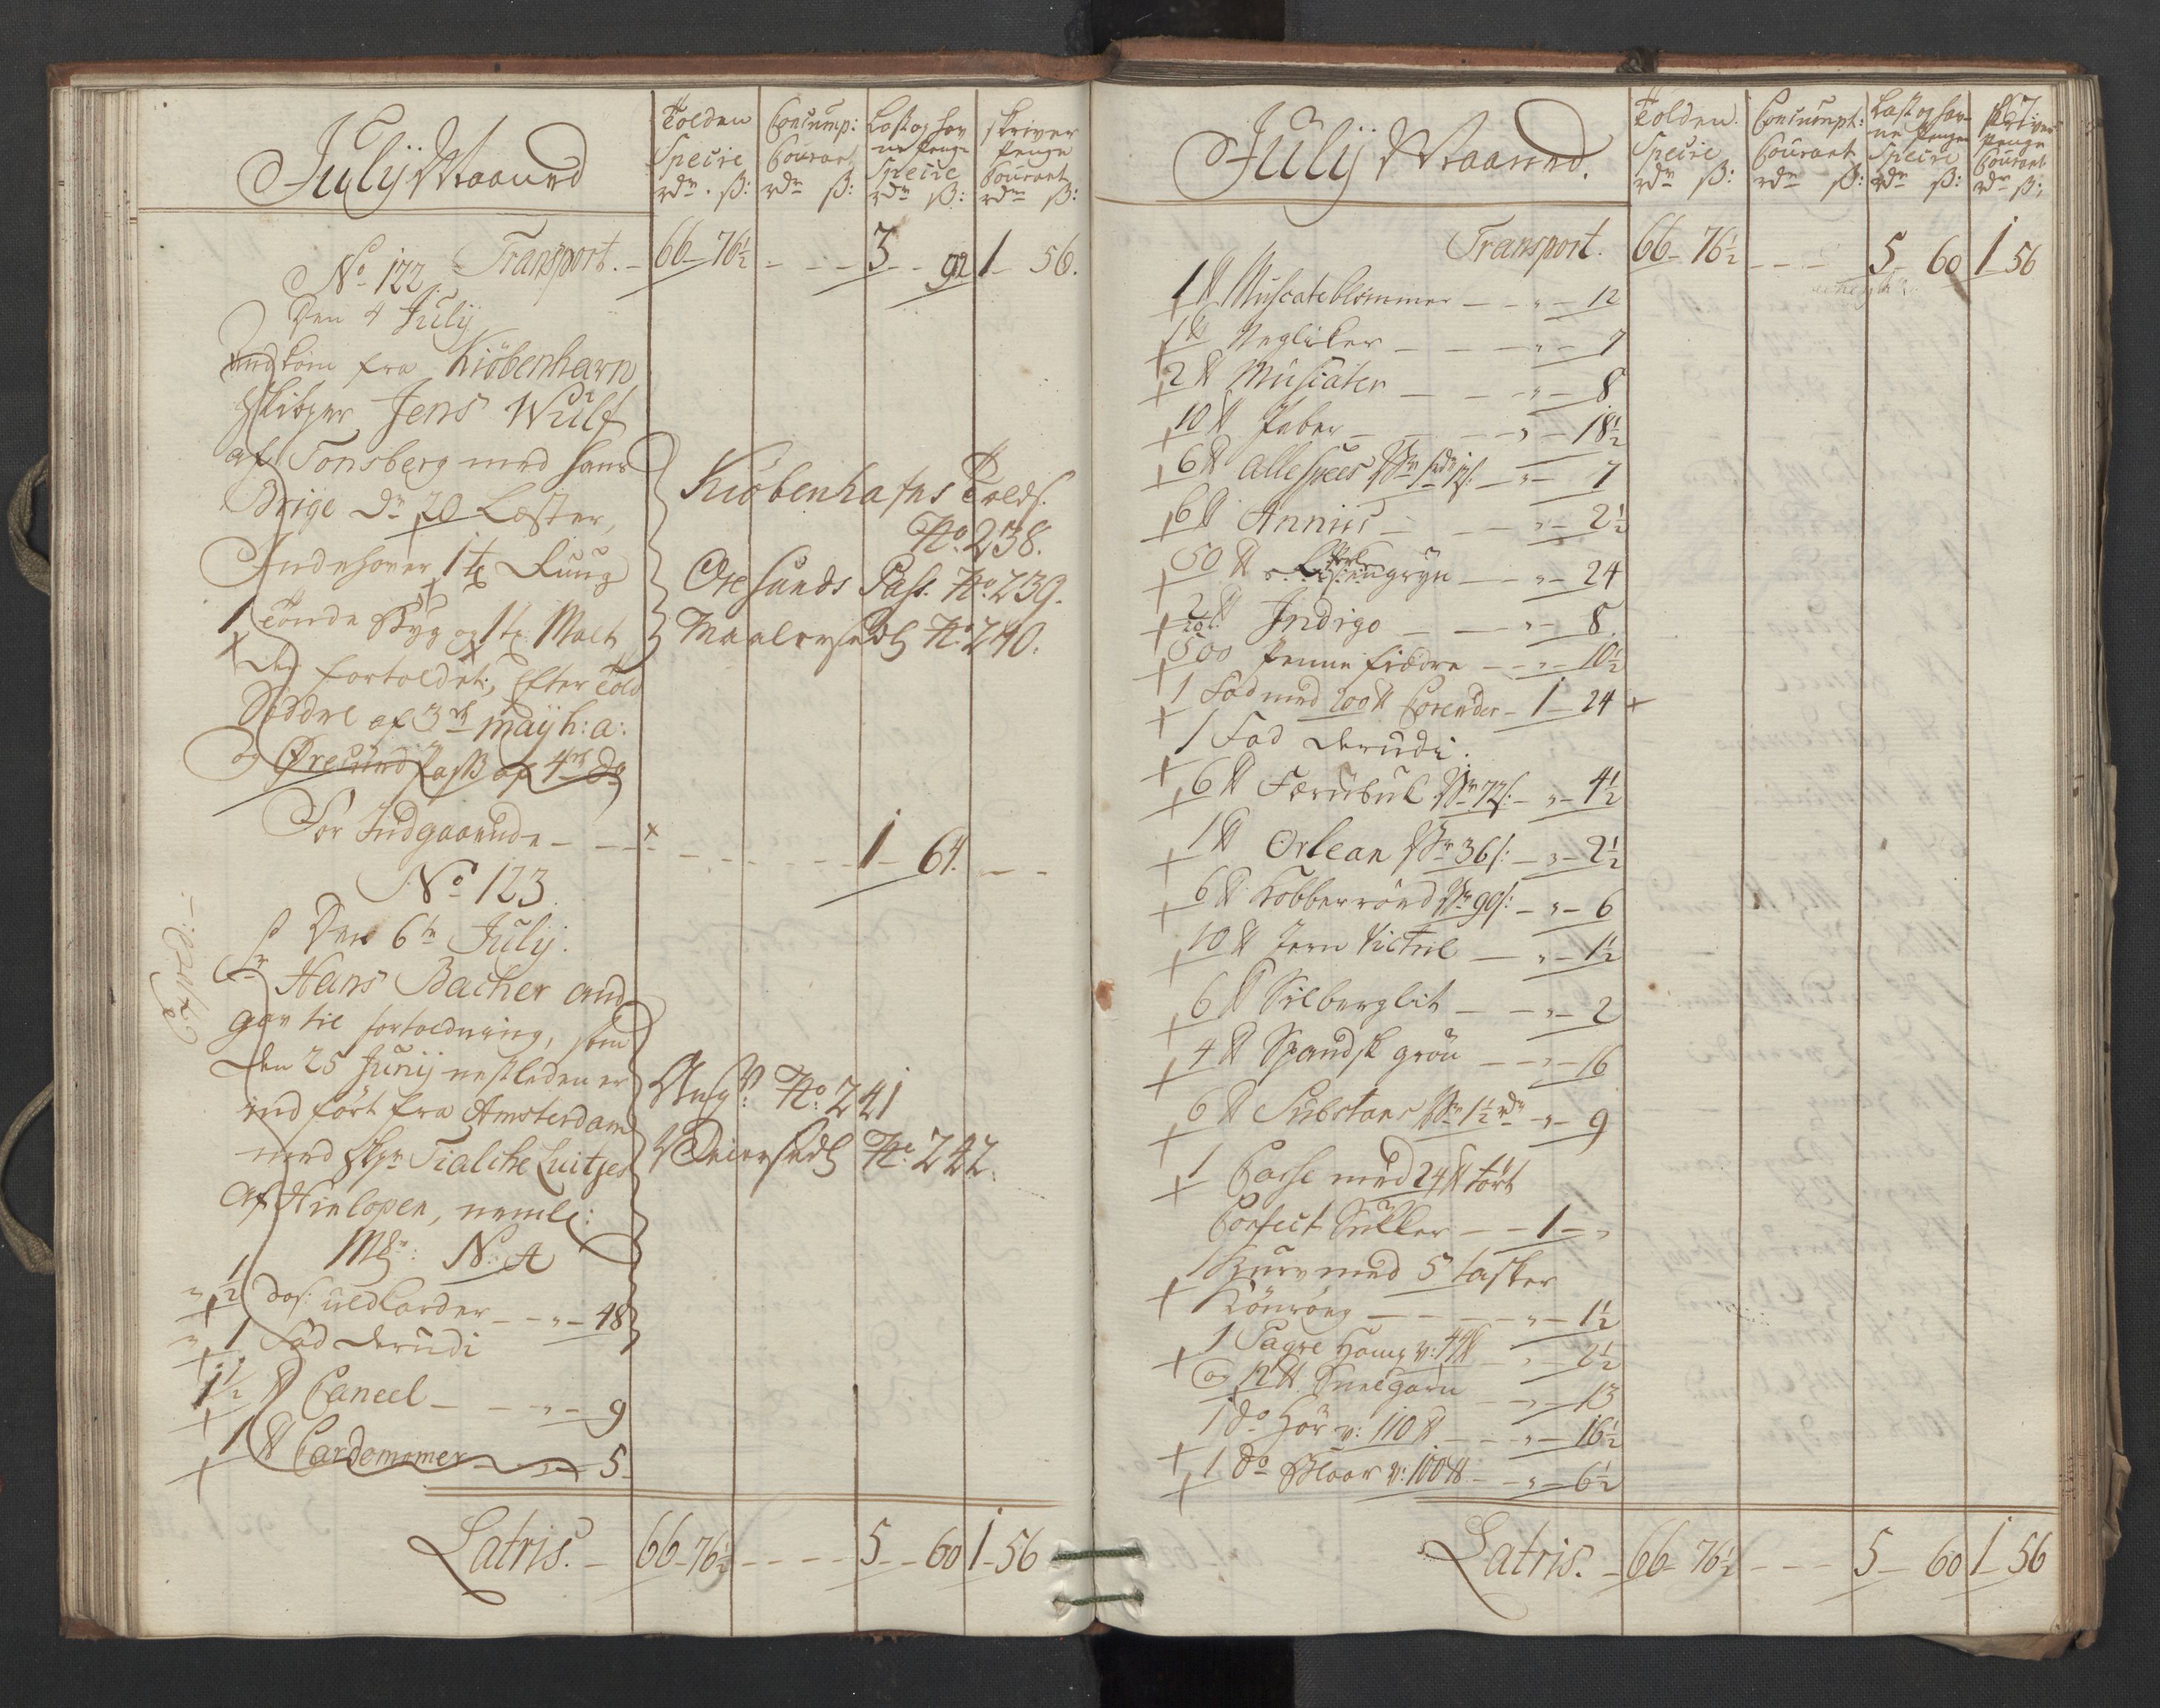 Julÿ Maaned
Tolden Specie rdr. ß:
Consump: Courant rdr ß:
Last og hav ne penge Specie rdr ß:
skriver penge Courant rdr ß:
Transport. – 66 – 76½ – – – 3 – 92 1 – 56.
No 122.
Den 4 Julÿ
andkom fra Kiöbenhavn
Skipper Jens Wulf
af Tonsberg med hans
Brige Dr 70 Læster,
Indehaver 1 tr Ruug
1 Tønde Byg og 1 tr: Malt
der fortoldet, Efter Told
Seddel af 3die maÿ h: a:
og Øresund pass af 4de do
Kiöbenhafns Tolds.
No. 238.
Öresunds Pass. No. 239.
Maalersedl No. 240.
For Indgaaende – – – 1 – 64. – –
No 123.
Den 6te Julÿ.
Sr Hans Bacher and
gav til fortoldning, som
den 25 Junij nestleden er
ind ført fra Amsterdam
med Skpr Tialche Luitjes
af Hinlopen, nemlig:
Ang: No: 241
Veiersedl No. 242.
Mk: N: A
½ Dos: uldkarder – – „ – 48
1 Fad Verudi
1½ ℔ Caneel – – – „ – 9
1 ℔ Cardemomer – – „ – 5
Latris. – 66 – 76½ – – – – 5 – 60 1 – 56
Julij Maaned.
Tolden. Specie rdr ß:
Consumpt: Courant rdr ß:
Last og hav- ne penge Specie rdr ß:
skriver penge Courant rdr ß:
Transport. 66 – 76½ – – – 5 – 60 1 – 56
1 ℔ Muscateblommer – – „ – 12
1 ℔ Negliker – – – „ – 7
2 ℔ Muscater – – „ – 8
10 ℔ Peber – – – „ – 18½
6 ℔ Allespees – „ – 7
6 ℔ Anniis – – – „ – 2½
50 ℔ – „ – 24
2 ℔ Indigo – – „ – 8
500 penne fiædre – – „ – 10½
1 Fad med 200 ℔ Corender – 1 – 24
1 Fad Verudi:
6 ℔ Fernbuk Vr 72 ß: – „ – 4½
1 ℔ Orlean Vr 36 ß: – „ – 2½
6 ℔ Kobberrøed Vr 90 ß: – „ – 6
10 ℔ Jern Victril – „ – 1½
6 ℔ Silberglit – – „ – 2
4 ℔ Spandsk grön – – „ – 16
6 ℔ Substans Vr 1½ rdr „ – 9
1 Casse med 24 ℔ tört
Confect Sukker – – 1 – „
1 Kurv med 5 tasker
Könrög – – – „ – 1½
1 Pagre Hamp v: 44 ℔ – „ – 2½
og 12 ℔ Seilgarn – – „ – 13
1 do Hör v: 110 ℔ – – „ – 16½
1 do Blaar v: 100 ℔ – – „ – 6½
Latris. – 66 – 76½ – – – 5 – 60 1 – 56